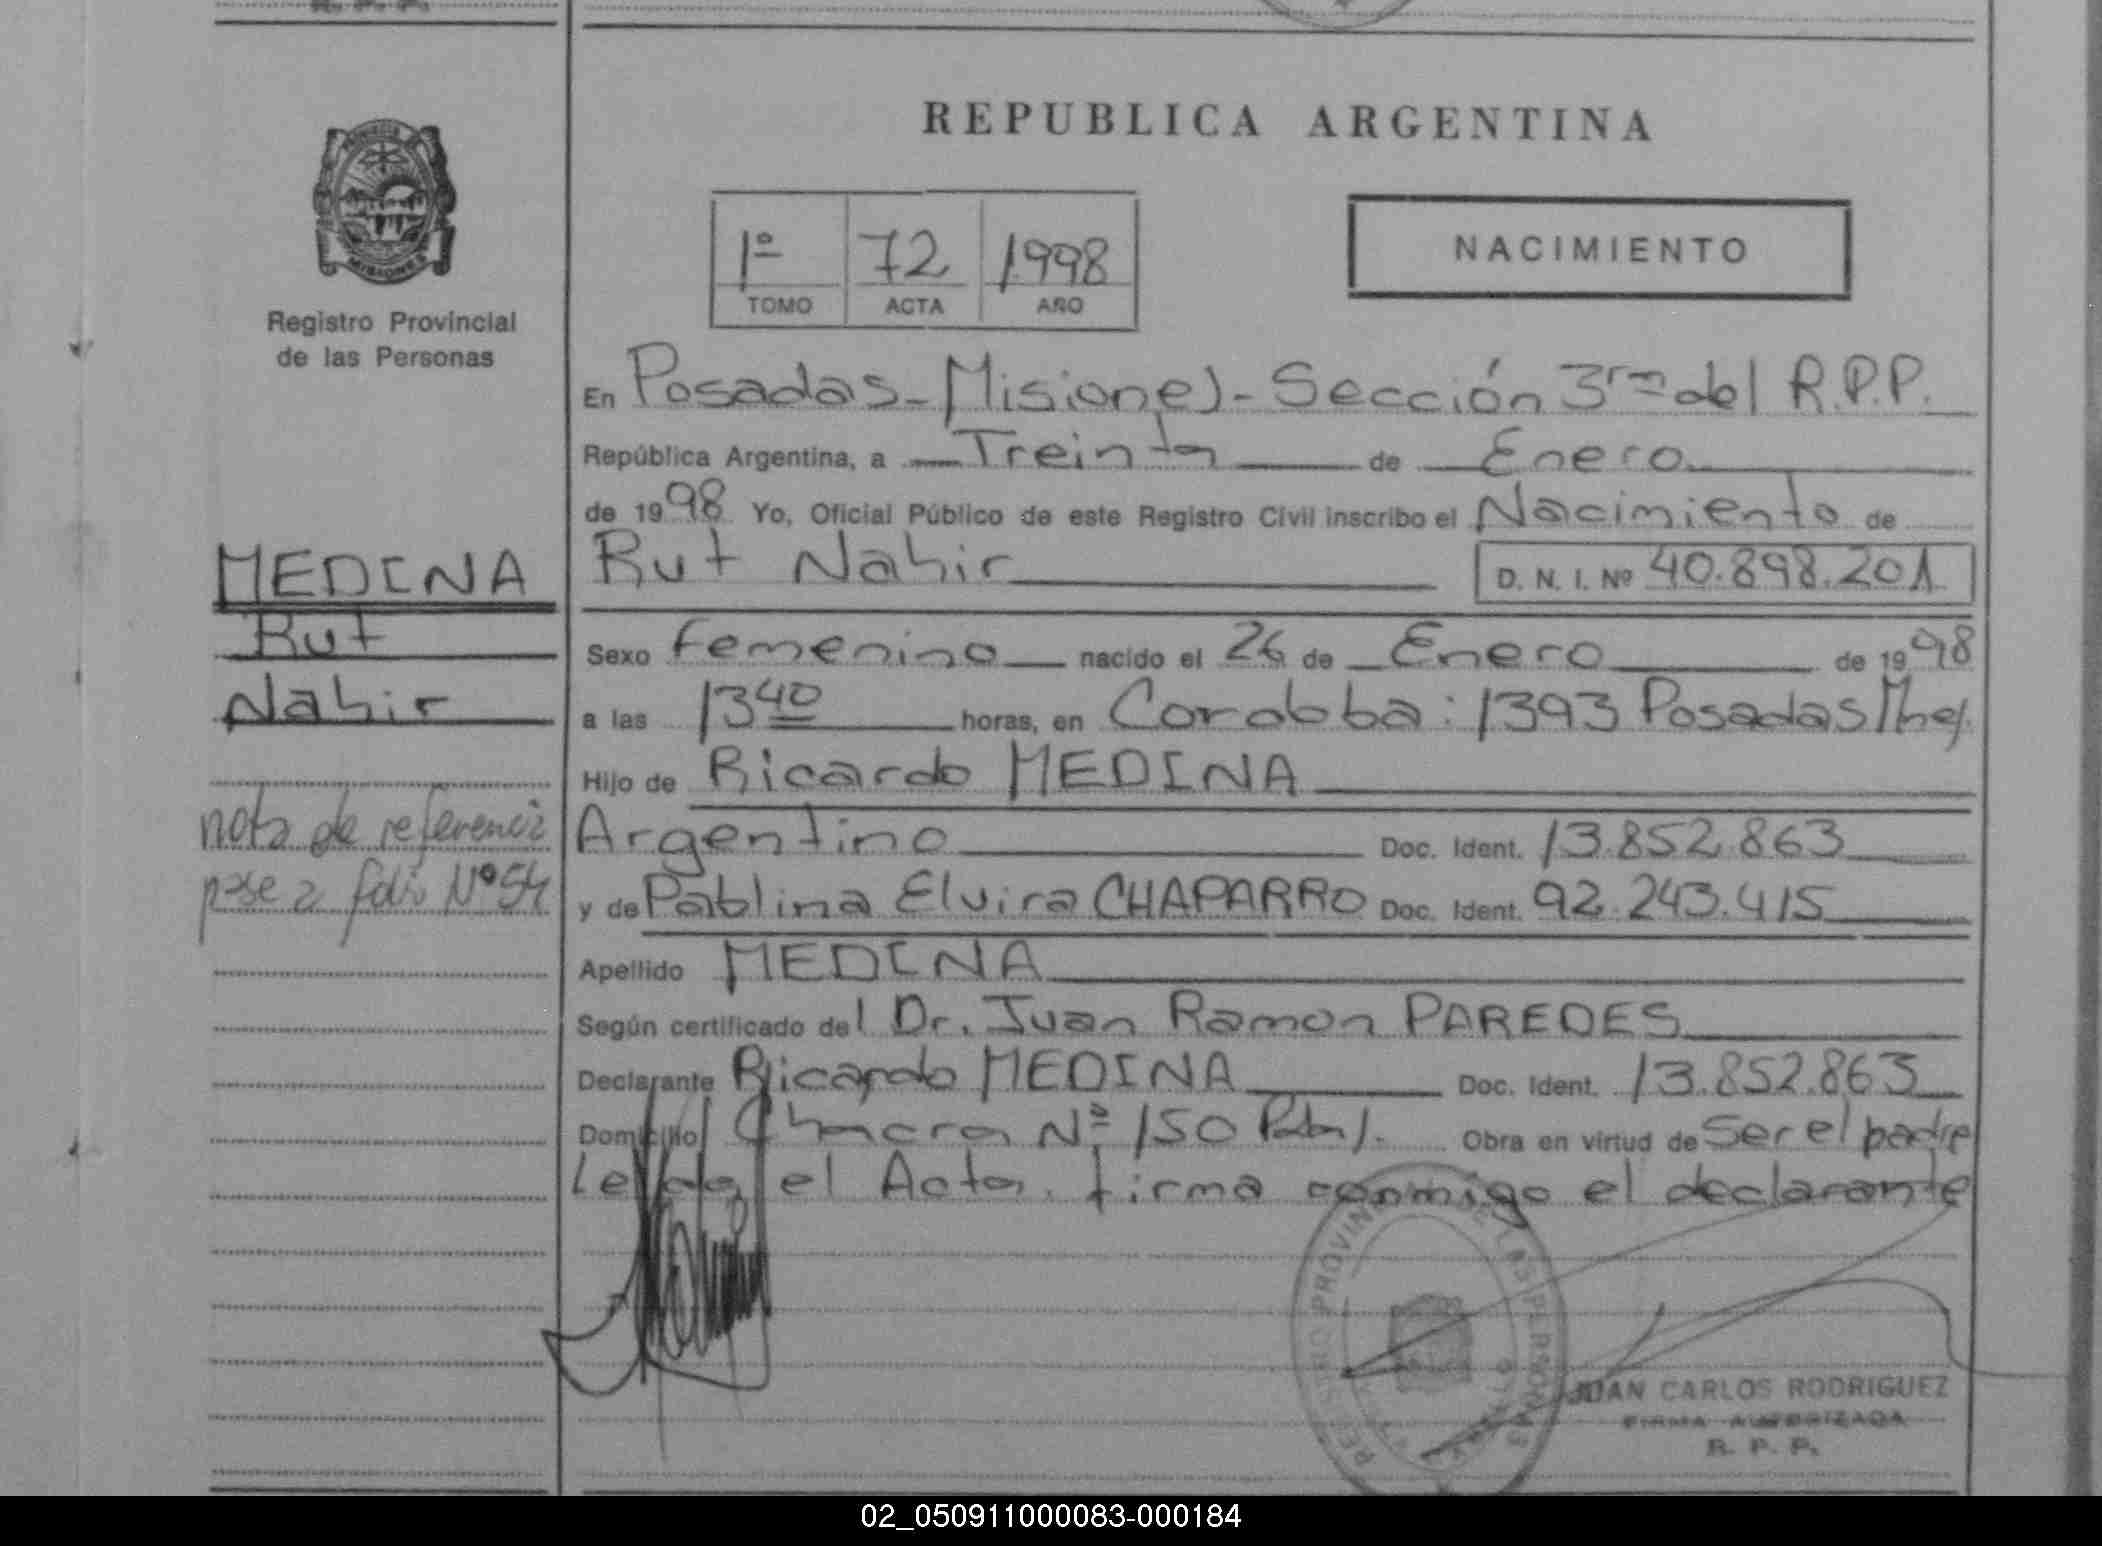 REPUBLICA ARGENTINA
MISIONES
Registro Provincial
de las Personas
1º 72 1998
TOMO ACTA AÑO
NACIMIENTO
En Posadas - Misiones - Sección 3ra del R.P.P.
República Argentina, a Treinta de Enero
de 1998 Yo, Oficial Público de este Registro Civil inscribo el Nacimiento de
Rut Nahir D. N. I. Nº 40.898.201
MEDINA
Rut
Nahir
Sexo Femenino nacido el 26 de Enero de 1998
a las 13 40 horas, en Cordoba: 1393 Posadas
Hijo de Ricardo MEDINA
Argentino Doc. Ident. 13.852.863
y de Pablina Elvira CHAPARRO Doc. Ident. 92.243.415
nota de referencia
pase a folio Nº 54
Apellido MEDINA
Según certificado del Dr. Juan Ramon PAREDES
Declarante Ricardo MEDINA Doc. Ident. 13.852.863
Domicilio Chacra Nº 150 Obra en virtud de Ser el padre
Leida el Acta. firma conmigo el declarante
REGISTRO PROVINCIAL DE LAS PERSONAS
JUAN CARLOS RODRIGUEZ
FIRMA AUTORIZADA
R. P. P.
02_050911000083-000184